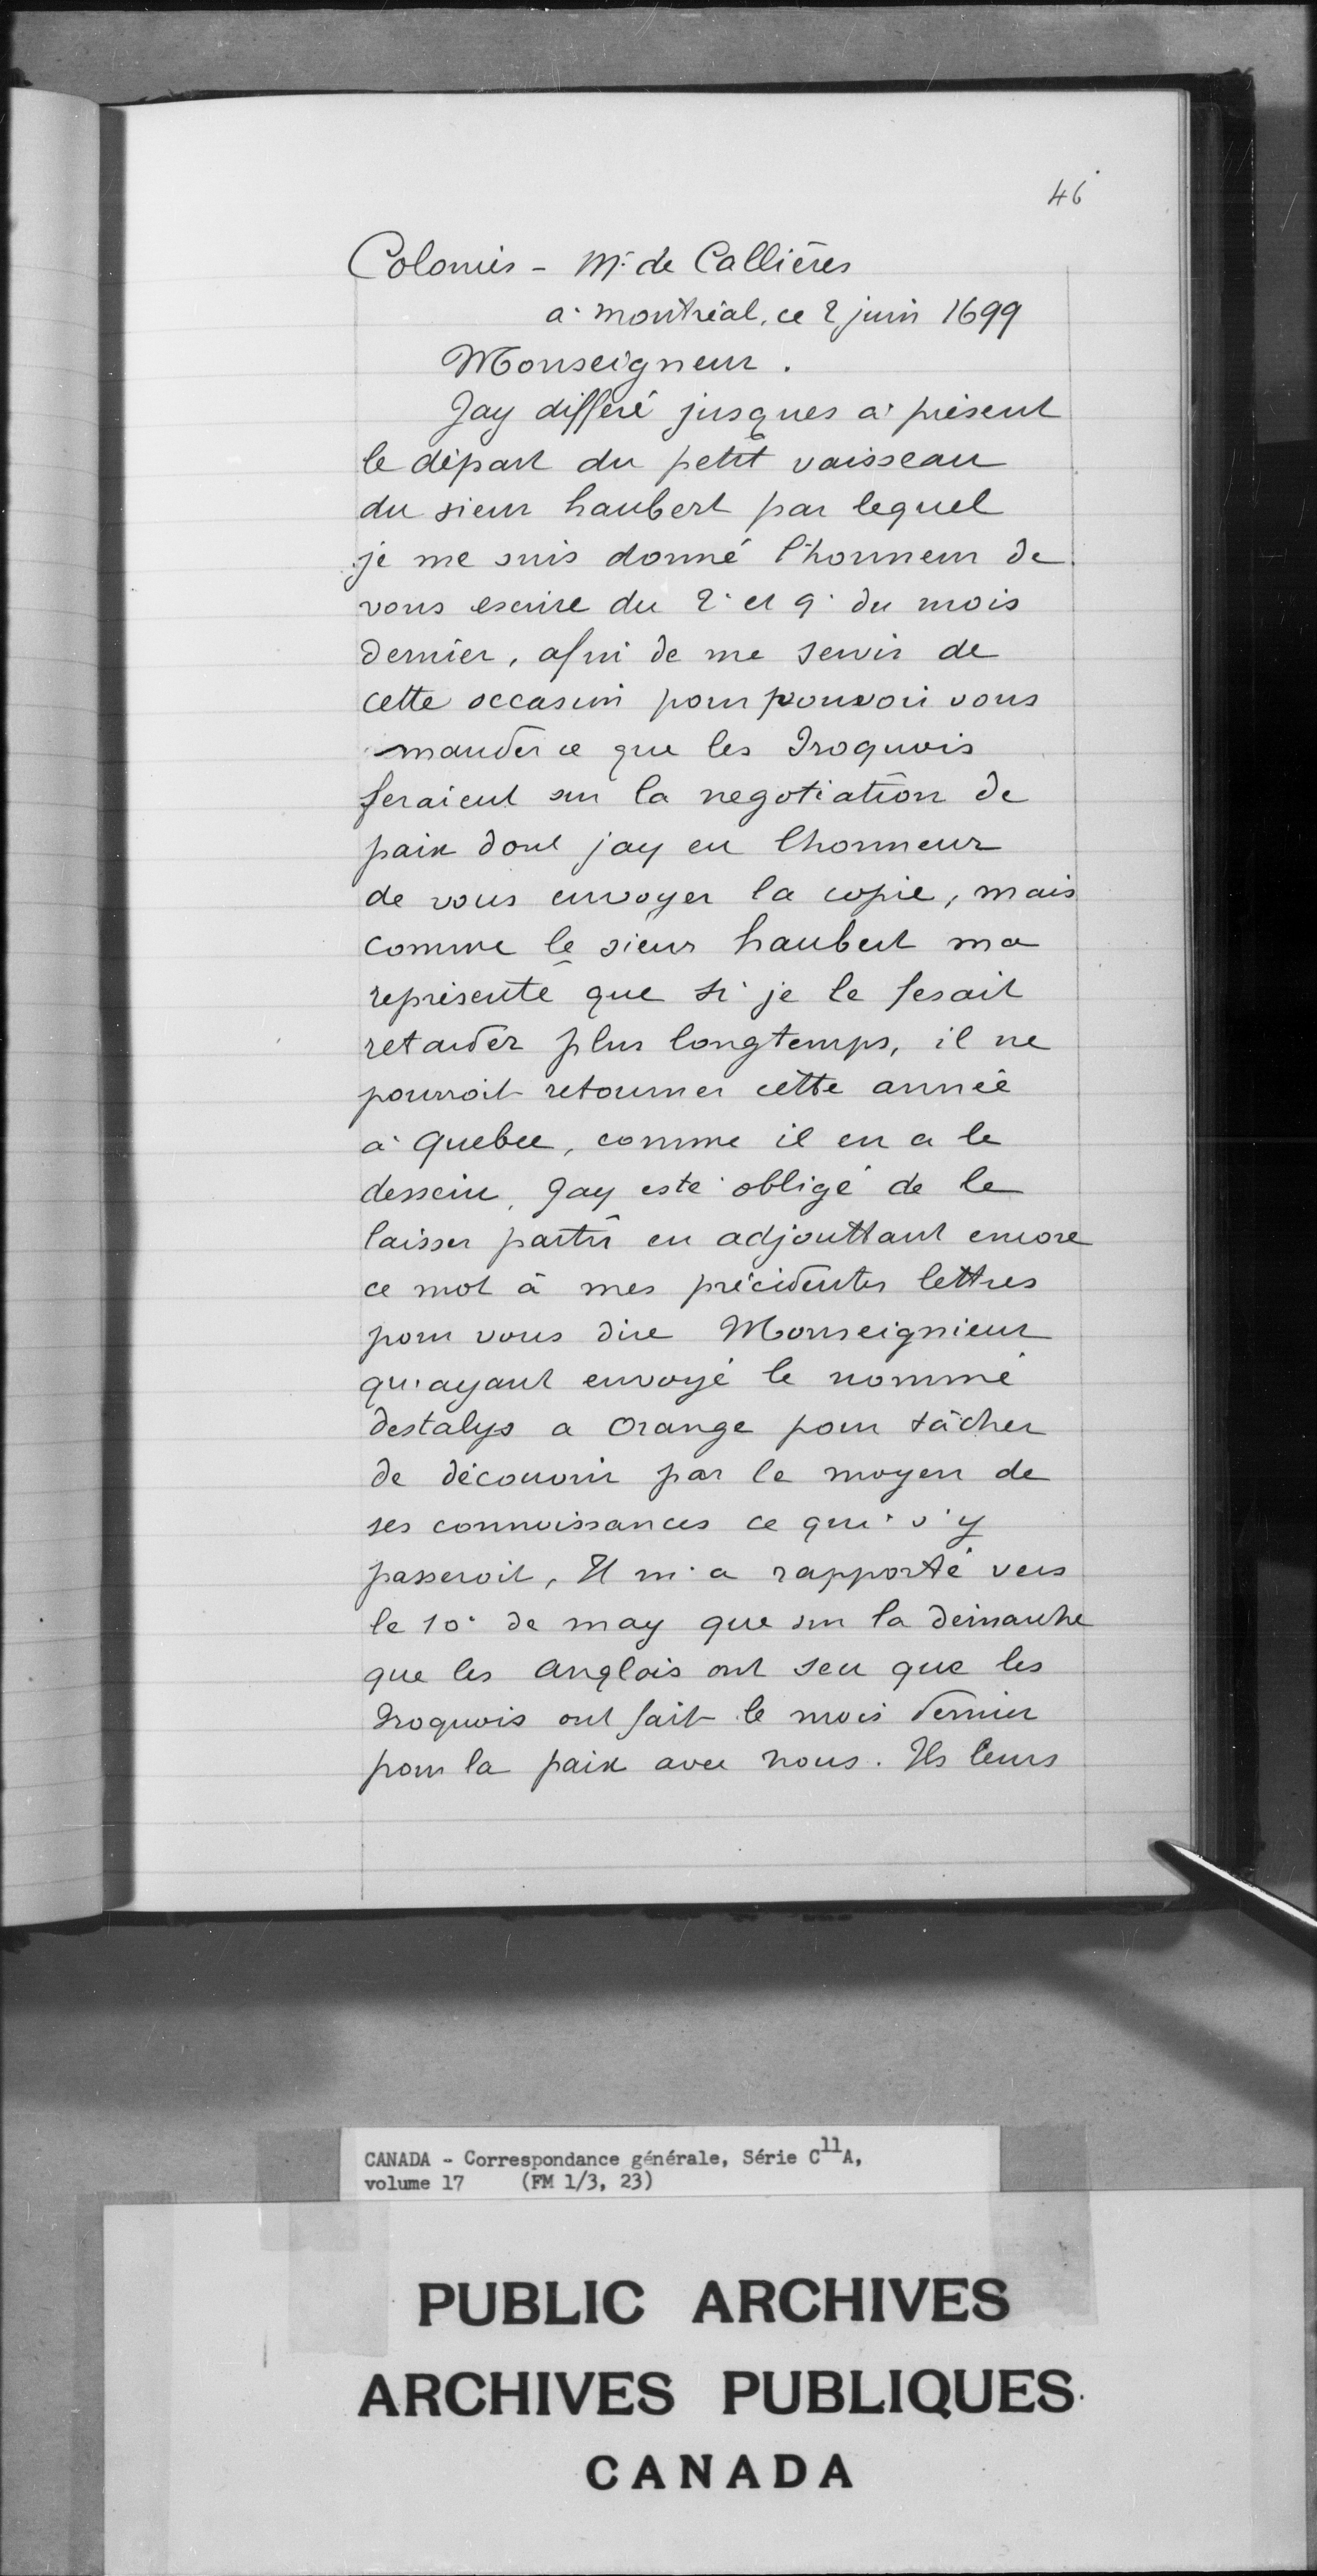 46
Colonies - Mr de Callières
a Montréal, ce 2 juin 1699
Monseigneur.
Jay différé jusques a présent
le départ du petit vaisseau
du sieur haubert par lequel
je me suis donné l'honneur de
vous escrire du 2e et 9e du mois
dernier, afin de me servir de
cette occasion pour pouvoir vous
mander ce que les Iroquois
feraient sur la negotiation de
paix dont jay eu lhonneur
de vous envoyer la copie, mais
comme le sieur haubert ma
représenté que si je le fesait
retarder plus longtemps, il ne
pourroit retourner cette année
à Quebec, comme il en a le
dessein, Jay esté obligé de le
laisser partir en adjouttant encore
ce mot à mes précédentes lettres
pour vous dire Monseignieur
qu'ayant envoyé le nommé
destalys a Orange pour tâcher
de découvrir par le moyen de
ses connoissances ce qui s'y
passeroit, Il m'a rapporté vers
le 10e de may que sur la démarche
que les Anglois ont seu que les
Iroquois ont fait le mois dernier
pour la paix avec nous. Ils leurs
CANADA - Correspondance générale, Série C11A,
volume 17 (FM 1/3, 23)
PUBLIC ARCHIVES
ARCHIVES PUBLIQUES
CANADA